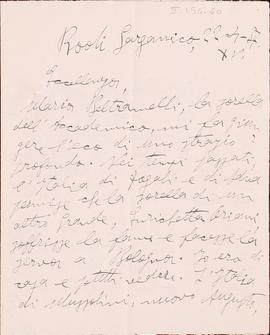 II. 156. 60
Rodi Garganico, 22-4-
XV.
Eccellenza,
Maria Beltramelli, la sorella
dell'Accademico, mi fa giun
gere l'eco di uno strazio
profondo. Nei tempi passati,
l'Italia di
permise che la sorella di un
altro grande, Enrichetta Oriani
soffrisse la fame e facesse la
serva a Bologna. Io ero di
casa e potetti vedere. L'Italia
di Mussolini, nuovo Augusto,